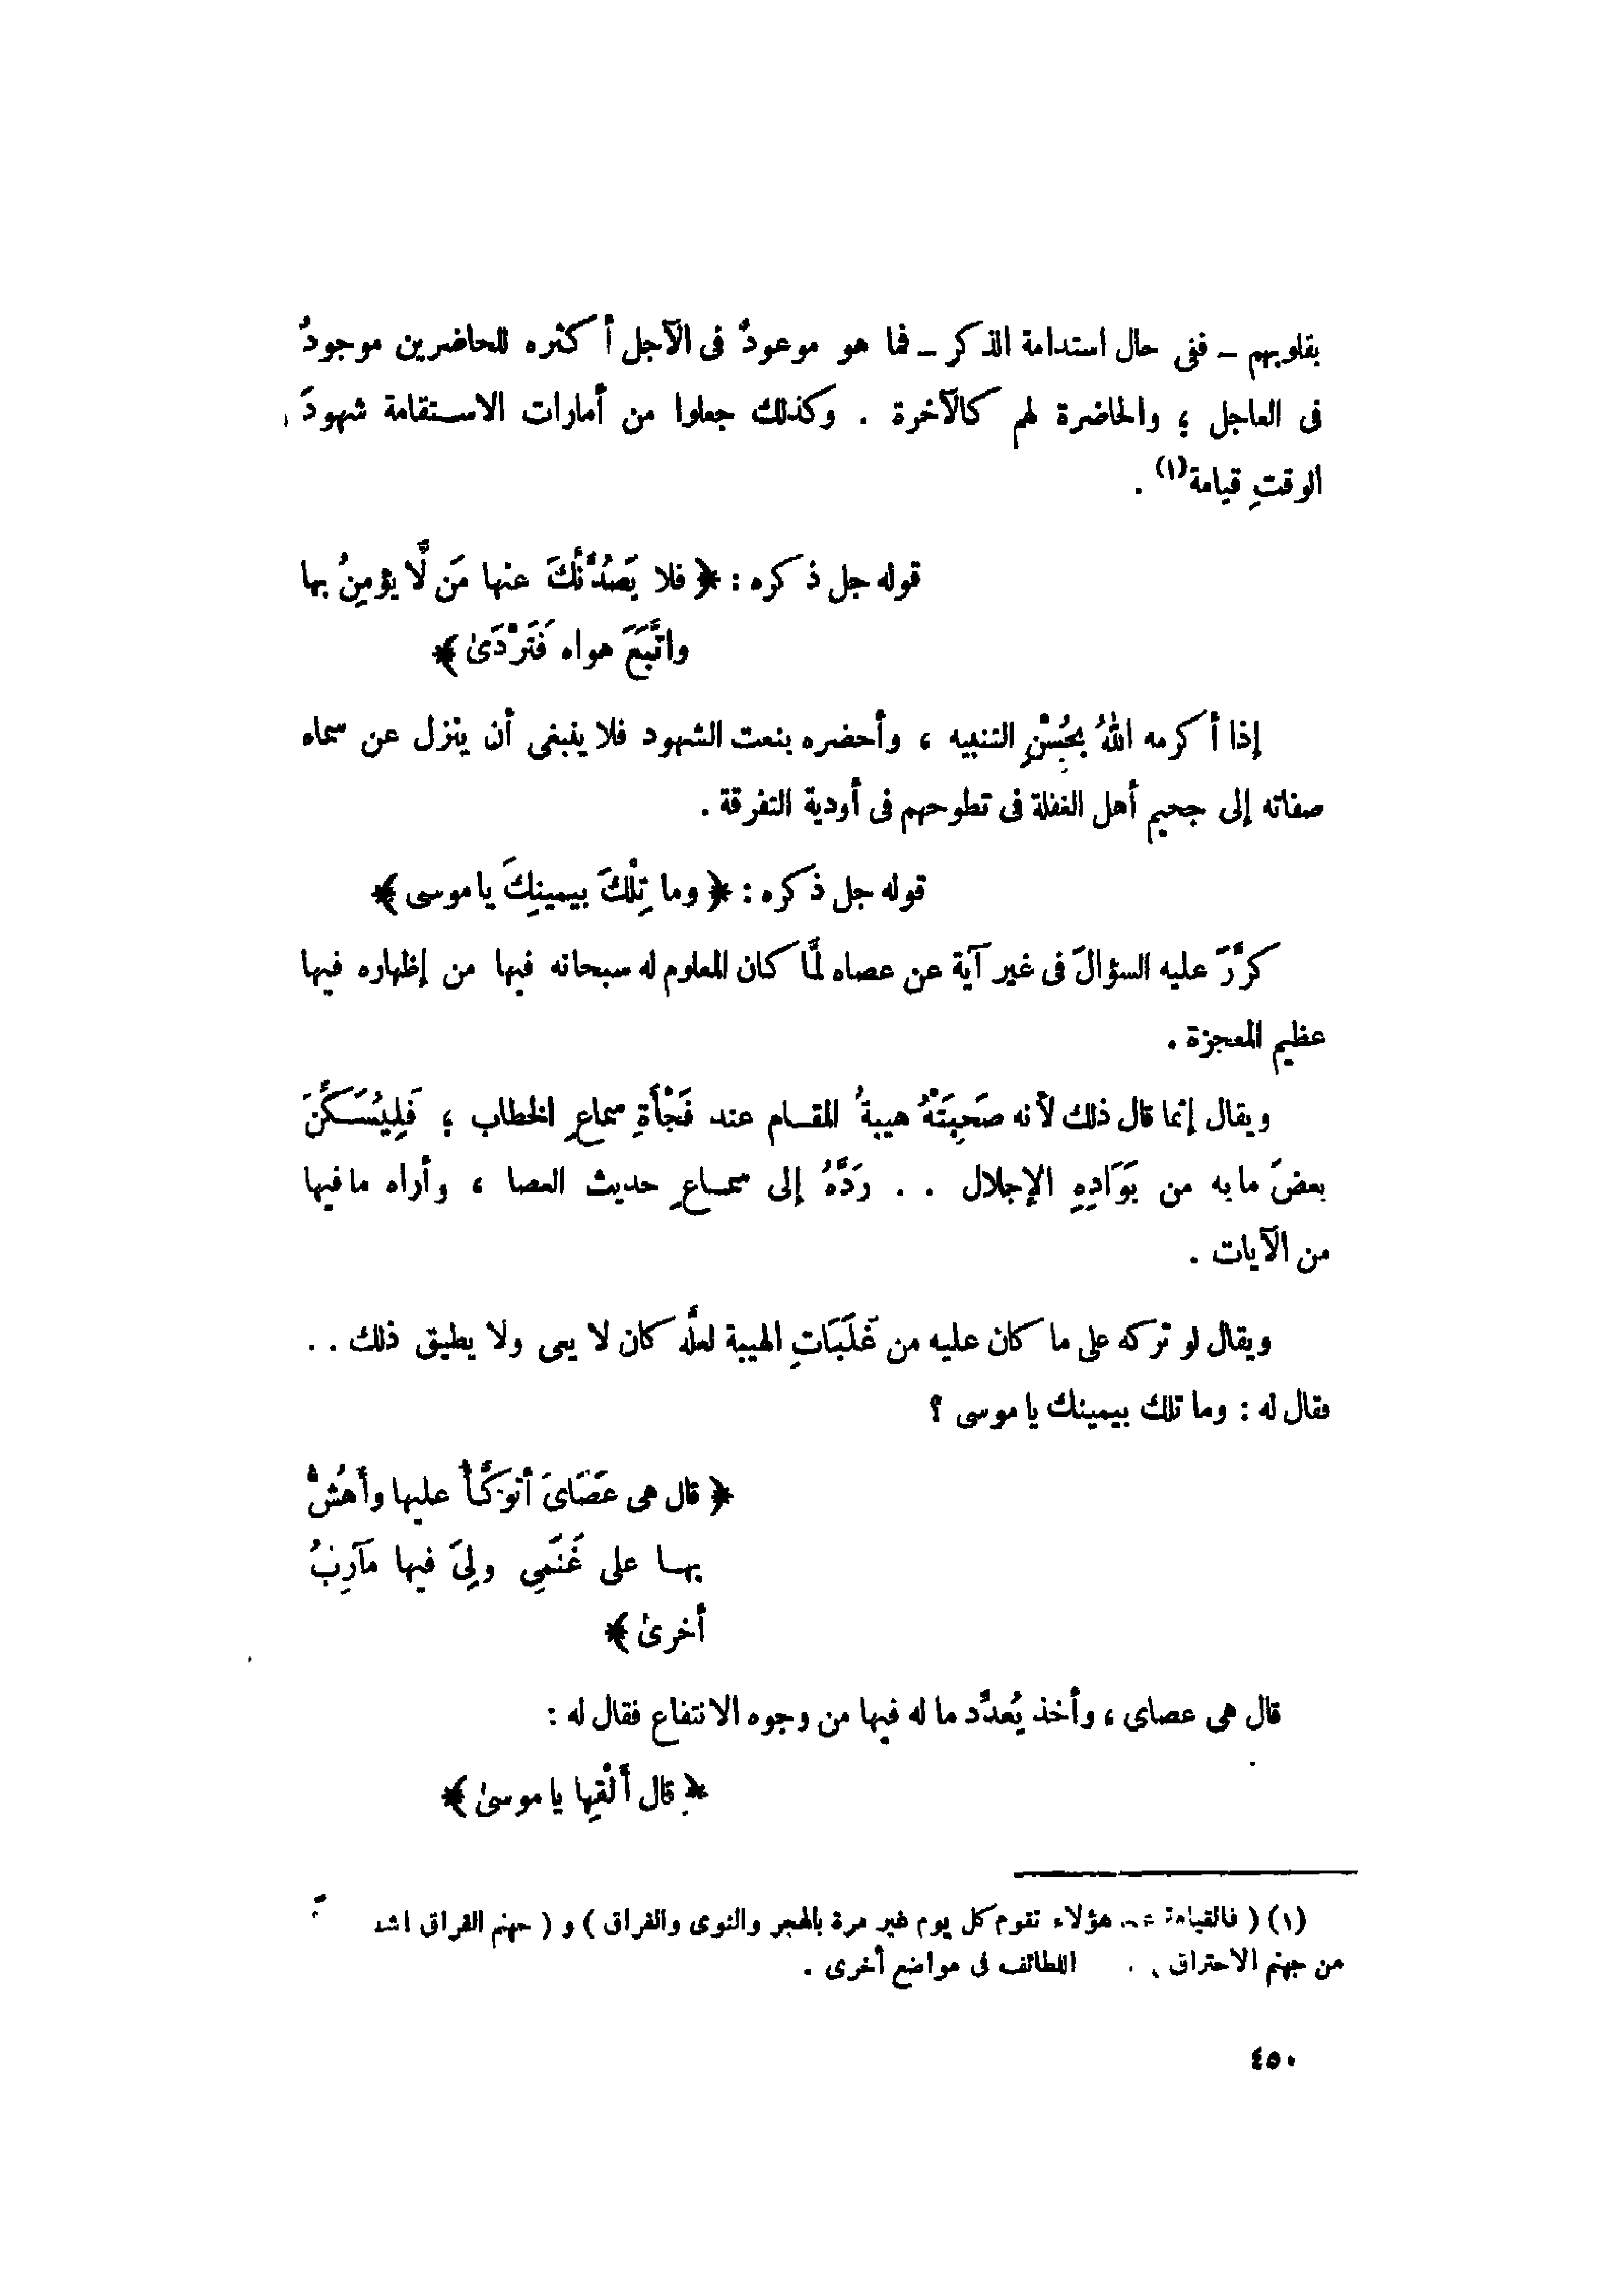 بقلوبهم – ففى حال استدامة الذكر – فما هو موعودٌ فى الآجل أكثره للحاضرين موجودٌ
فى العاجل ؛ والحاضرة لهم كالآخرة . وكذلك جعلوا من أمارات الاستقامة شهودَ
الوقتِ قيامة(١) .
قوله جل ذكره : ﴿ فلا يَصُدَّنَّكَ عنها مَن لَّا يؤمِنُ بها
واتَّبَعَ هواه فَتَرْدَىٰ ﴾
إذا أكرمه اللهُ بحُسْنِ التنبيه ، وأحضره بنعت الشهود فلا ينبغى أن ينزل عن سماء
صفاته إلى جحيم أهل الغفلة فى تطوحهم فى أودية التفرقة .
قوله جل ذكره : ﴿ وما تِلْكَ بيمينِكَ ياموسى ﴾
كرَّرَ عليه السؤالَ فى غير آية عن عصاه لمَّا كان المعلوم له سبحانه فيها من إظهاره فيها
عظيم المعجزة .
ويقال إنما قال ذلك لأنه صَحِبَتْهُ هيبةُ المقام عند فَجْأَةِ سماعِ الخطاب ؛ فَلِيُسَكِّنَ
بعضَ مابه من بَوَادِهِ الإجلال . . رَدَّهُ إلى سماعِ حديث العصا ، وأراه مافيها
من الآيات .
ويقال لو تركه على ما كان عليه من غَلَبَاتِ الهيبة لعلَّه كان لا يعى ولا يطيق ذلك . .
فقال له : وما تلك بيمينك يا موسى ؟
﴿ قال هى عَصَاىَ أتوَكَّأُ عليها وأَهُشُّ
بها على غَنَمِى ولِىَ فيها مَآرِبُ
أخرىٰ ﴾
قال هى عصاى ، وأخذ يُعدِّد ما له فيها من وجوه الانتفاع فقال له :
﴿ قال أَلْقِها يا موسىٰ ﴾
(١) ( فالقيامة عند هؤلاء تقوم كل يوم غير مرة بالهجر والنوى والفراق ) و ( جهنم الفراق اشد
من جهنم الاحتراق اللطائف فى مواضع أخرى .
٤٥٠